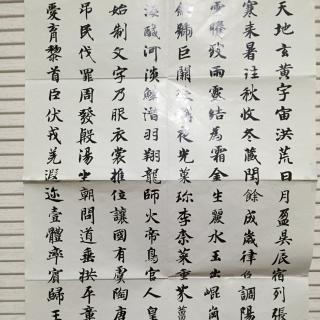 天地玄黃宇宙洪荒日月盈昃辰宿列張
寒來暑往秋收冬藏閏餘成歲律呂調陽
雲騰致雨露結為霜金生麗水玉出崑岡
劍號巨闕珠稱夜光菓珍李柰菜重芥薑
海醎河淡鱗潛羽翔龍師火帝鳥官人皇
始制文字乃服衣裳推位讓國有虞陶唐
吊民伐罪周發殷湯坐朝問道垂拱平章
愛育黎首臣伏戎羌遐迩壹體率賓歸王